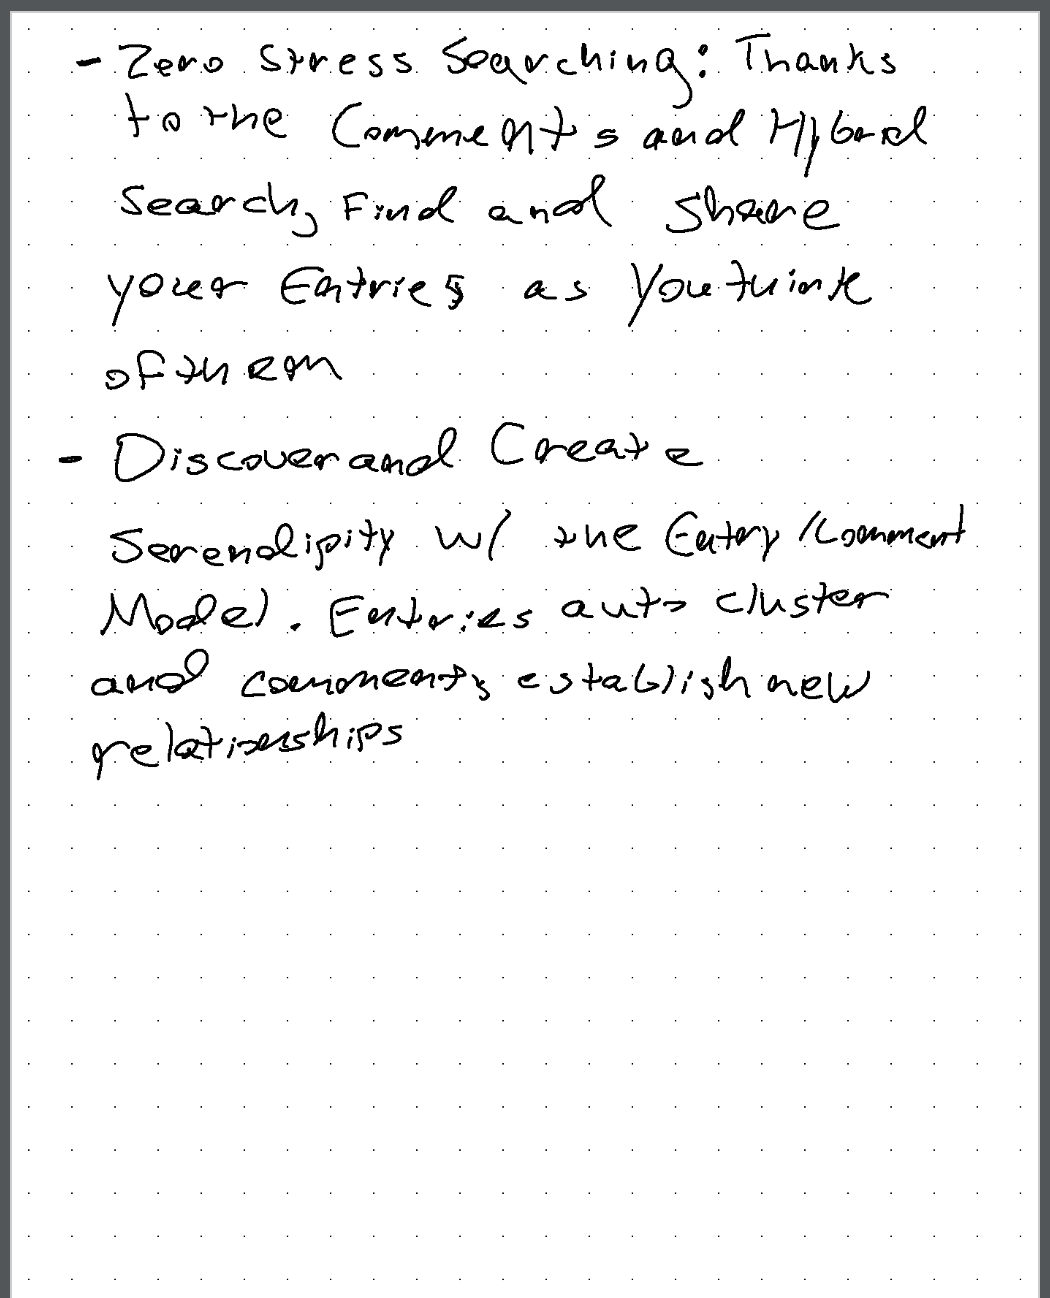 - Zero Stress Searching: Thanks
to the Comments and Hybrid
Search, Find and share
your Entries as you think
of them
- Discover and Create
Serendipity w/ the Entry/Comment
Model. Entries auto cluster
and comments establish new
relationships